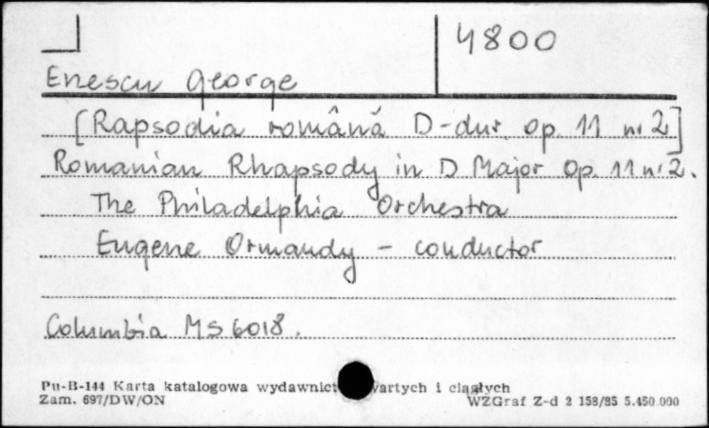 4800
Enescu George
[Rapsodia română D-dur op. 11 nr 2]
Romanian Rhapsody in D Major Op. 11 nr 2.
The Philadelphia Orchestra
Eugene Ormandy - conductor
Columbia MS 6018.
Pu-B-144 Karta katalogowa wydawnict wartych i ciągłych
Zam. 697/DW/ON WZGraf Z-d 2 158/85 5.450.000